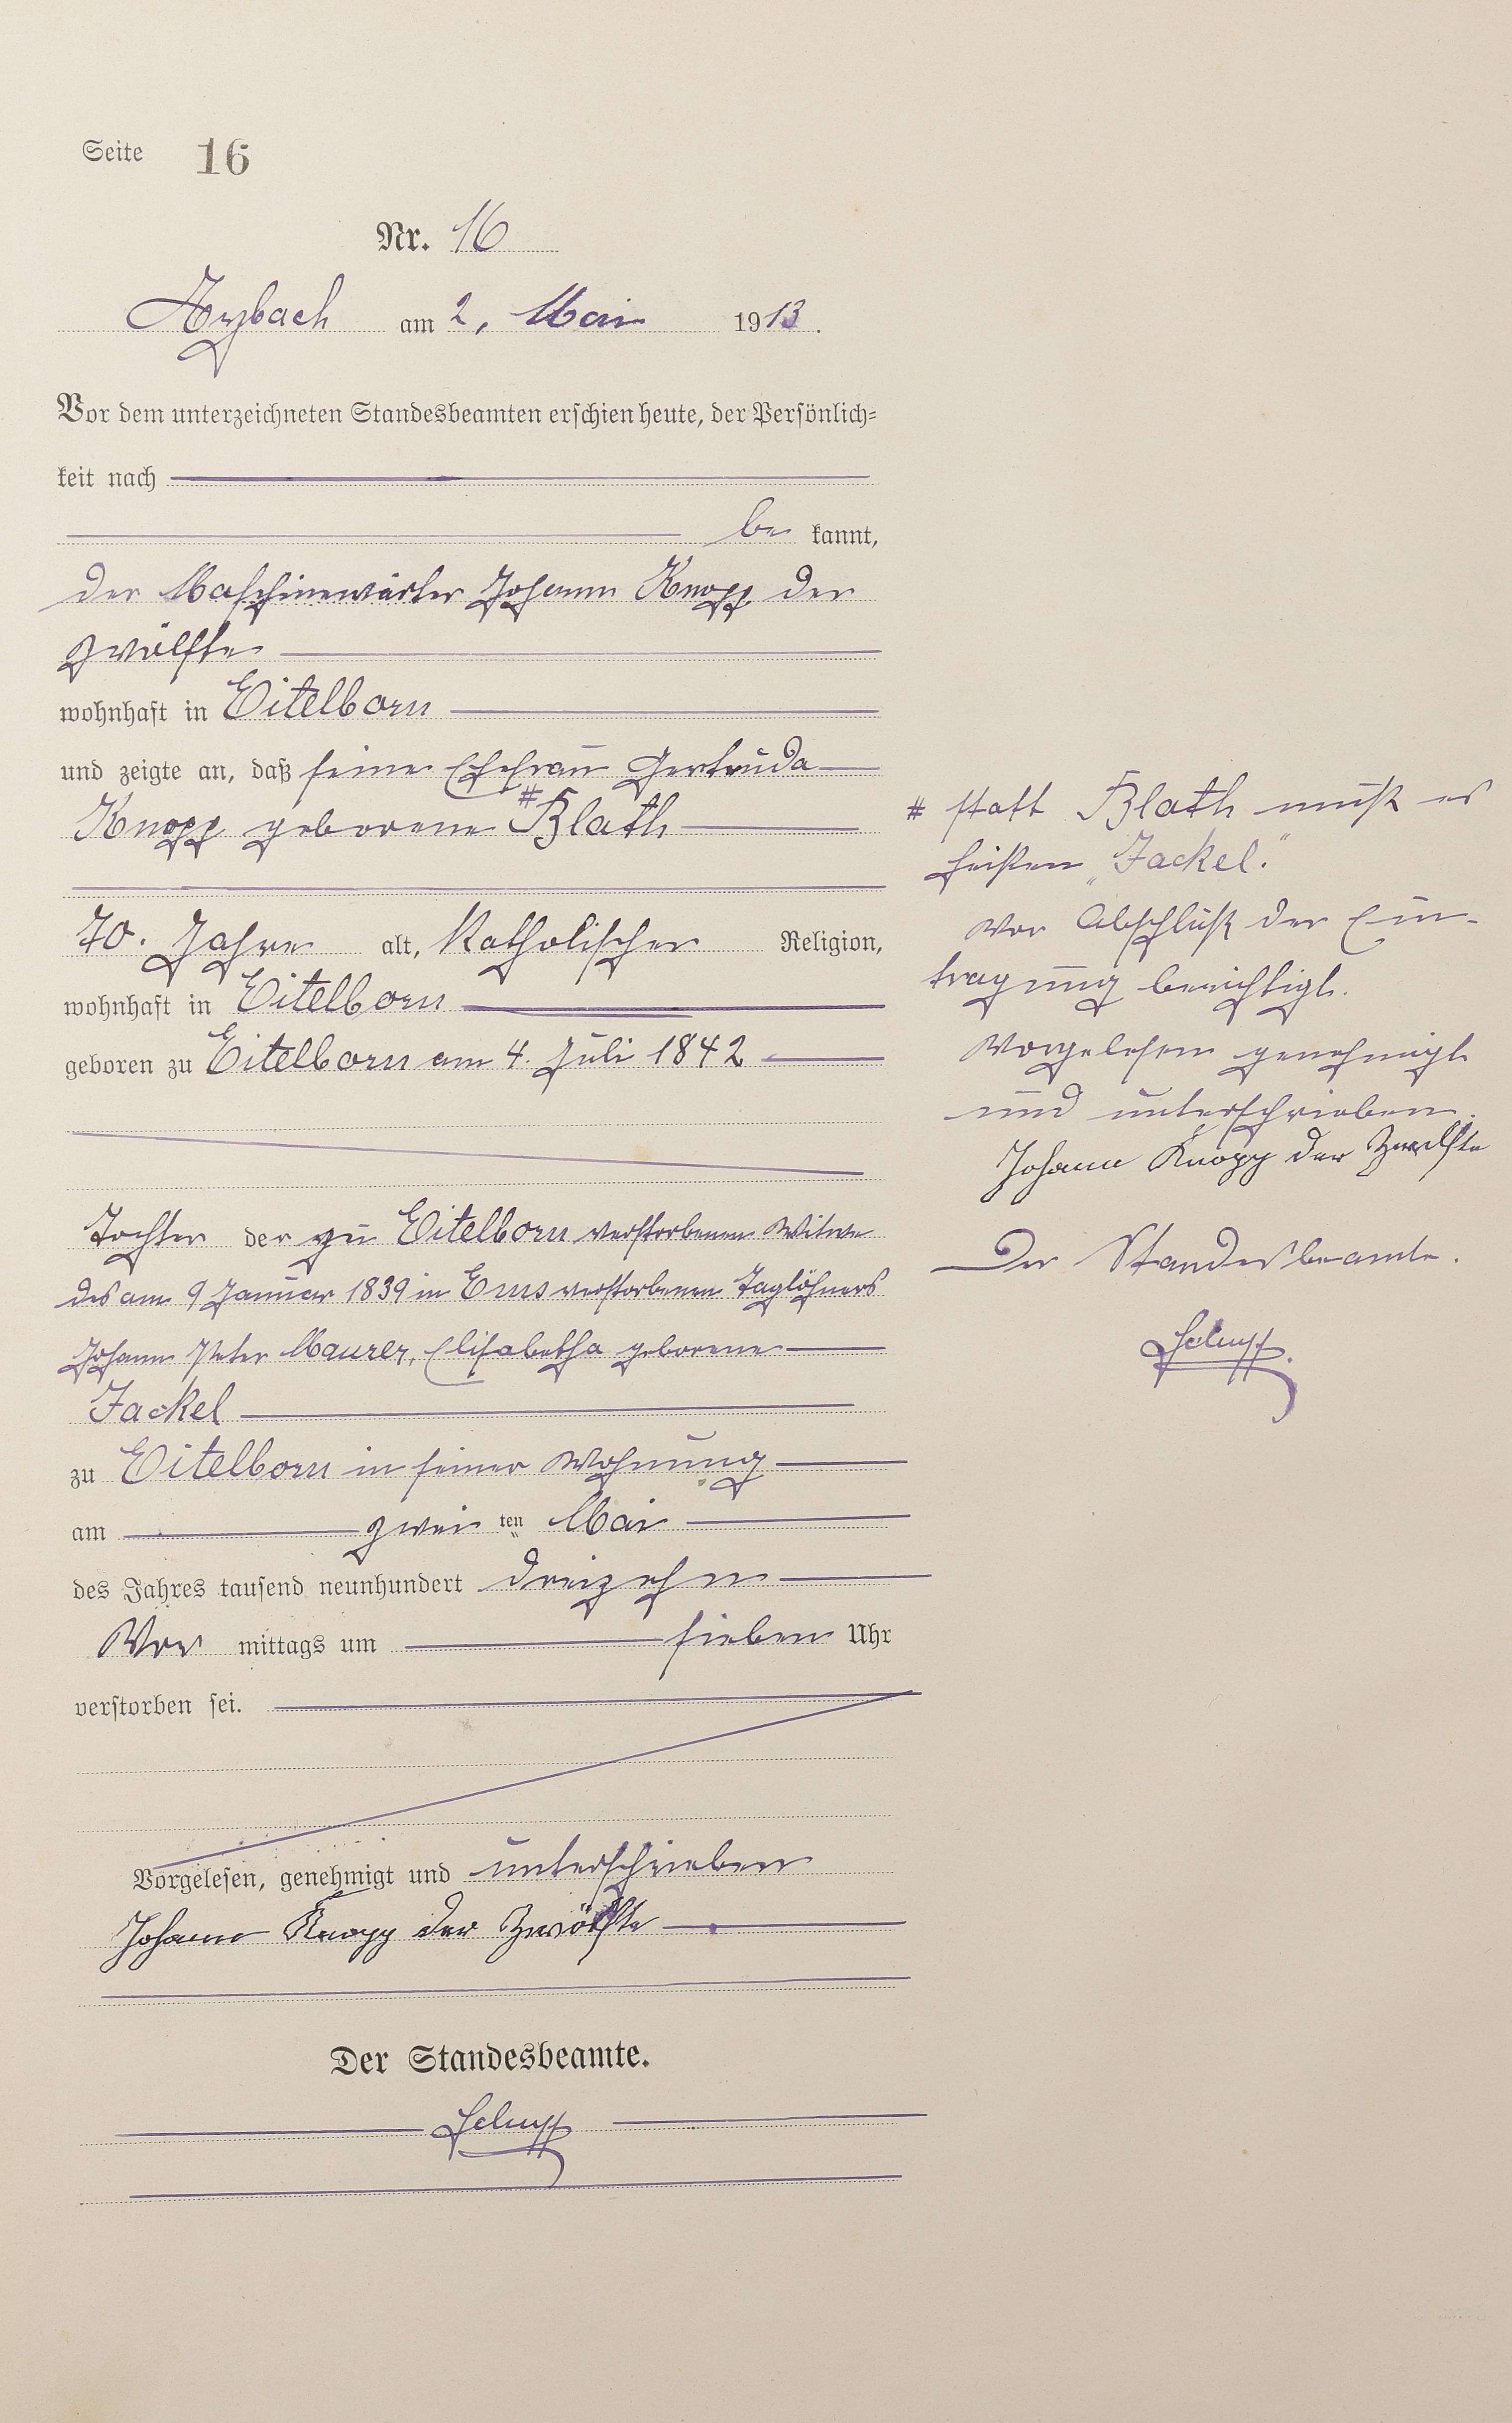 Seite 16
Nr. 16
Arzbach am 2. Mai 1913.
Vor dem unterzeichneten Standesbeamten erschien heute, der Persönlich=
keit nach
be kannt,
der Maschinewärter Johann Knopp der
zwölfte
wohnhaft in Eitelborn
und zeigte an, daß seine Ehefrau Gertruda
Knopp geborene # Blath
70. Jahre alt, Katholischer Religion,
wohnhaft in Eitelborn
geboren zu Eitelborn am 4. Juli 1842
Tochter der zu Eitelborn verstorbenen Witwe
des am 9 Januar 1839 in Ems verstorbenen Taglöhners
Johann Peter Maurer, Elisabetha geborene
Jackel
zu Eitelborn in seiner Wohnung
am zwei ten Mai
des Jahres tausend neunhundert dreizehn
Vor mittags um sieben Uhr
verstorben sei.
Vorgelesen, genehmigt und unterschrieben
Johann Knopp der Zwölfte
Der Standesbeamte.
# statt Blath muß es
heißen „Jackel."
Vor Abschluß der Ein-
tragung berichtigt.
Vorgelesen genehmigt
und unterschrieben.
Johann Knopp der Zwölfte
Der Standesbeamte.